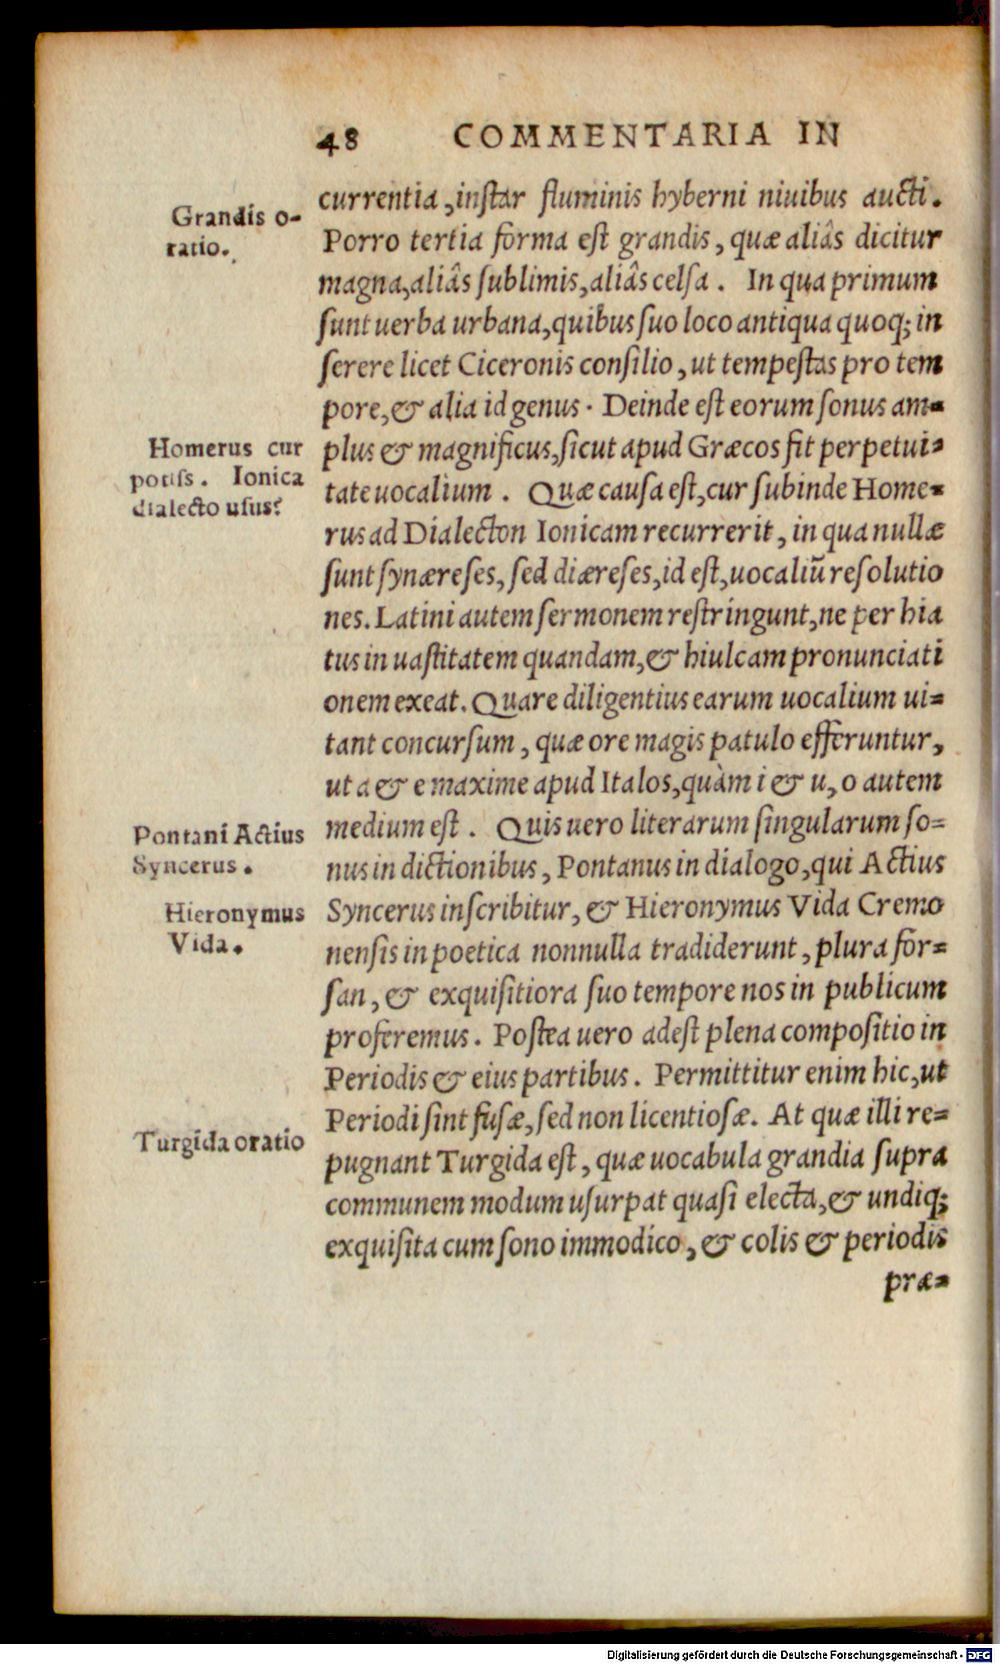 48 COMMENTARIA IN
Grandis o-
ratio.
currentia, inſtar fluminis hyberni niuibus aucti.
Porro tertia forma eſt grandis, quæ aliâs dicitur
magna, aliâs ſublimis, aliâs celſa. In qua primum
ſunt uerba urbana, quibus ſuo loco antiqua quoq; in
ſerere licet Ciceronis conſilio, ut tempeſtas pro tem
pore, & alia id genus. Deinde eſt eorum ſonus am-
Homerus cur
potiſs. Ionica
dialecto uſus?
plus & magnificus, ſicut apud Græcos fit perpetui-
tate uocalium. Quæ cauſa eſt, cur ſubinde Home-
rus ad Dialecton Ionicam recurrerit, in qua nullæ
ſunt ſynæreſes, ſed diæreſes, id eſt, uocaliũ reſolutio
nes. Latini autem ſermonem reſtringunt, ne per hia
tus in uaſtitatem quandam, & hiulcam pronunciati
onem exeat. Quare diligentius earum uocalium ui-
tant concurſum, quæ ore magis patulo efferuntur,
ut a & e maxime apud Italos, quàm i & u, o autem
Pontani Actius
Syncerus.
medium eſt. Quis uero literarum ſingularum ſo-
nus in dictionibus, Pontanus in dialogo, qui Actius
Hieronymus
Vida.
Syncerus inſcribitur, & Hieronymus Vida Cremo
nenſis in poetica nonnulla tradiderunt, plura for-
ſan, & exquiſitiora ſuo tempore nos in publicum
proferemus. Poſtea uero adeſt plena compoſitio in
Periodis & eius partibus. Permittitur enim hic, ut
Periodi ſint fuſæ, ſed non licentioſæ. At quæ illi re-
Turgida oratio
pugnant Turgida eſt, quæ uocabula grandia ſupra
communem modum uſurpat quaſi electa, & undiq;
exquiſita cum ſono immodico, & colis & periodis
præ-
Digitalisierung gefördert durch die Deutsche Forschungsgemeinschaft - DFG